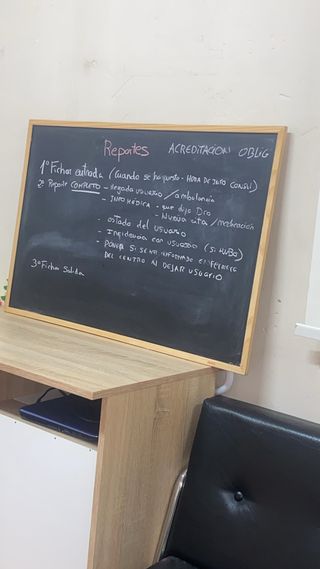 Reportes ACREDITACION OBLIG
1º Fichar entrada (cuando se ha puesto - HORA DE INTO CONSUL)
2º Reporte COMPLETO - llegada usuario / ambulancia
- INFO MÉDICA - que dijo Dro
- Nueva cita / medicación
- estado del usuario
- Incidencia con usuario (si hubo)
- PONER SI SE HA INFORMADO ENFERMERO
DEL CENTRO AL DEJAR USUARIO
3º Fichar Salida